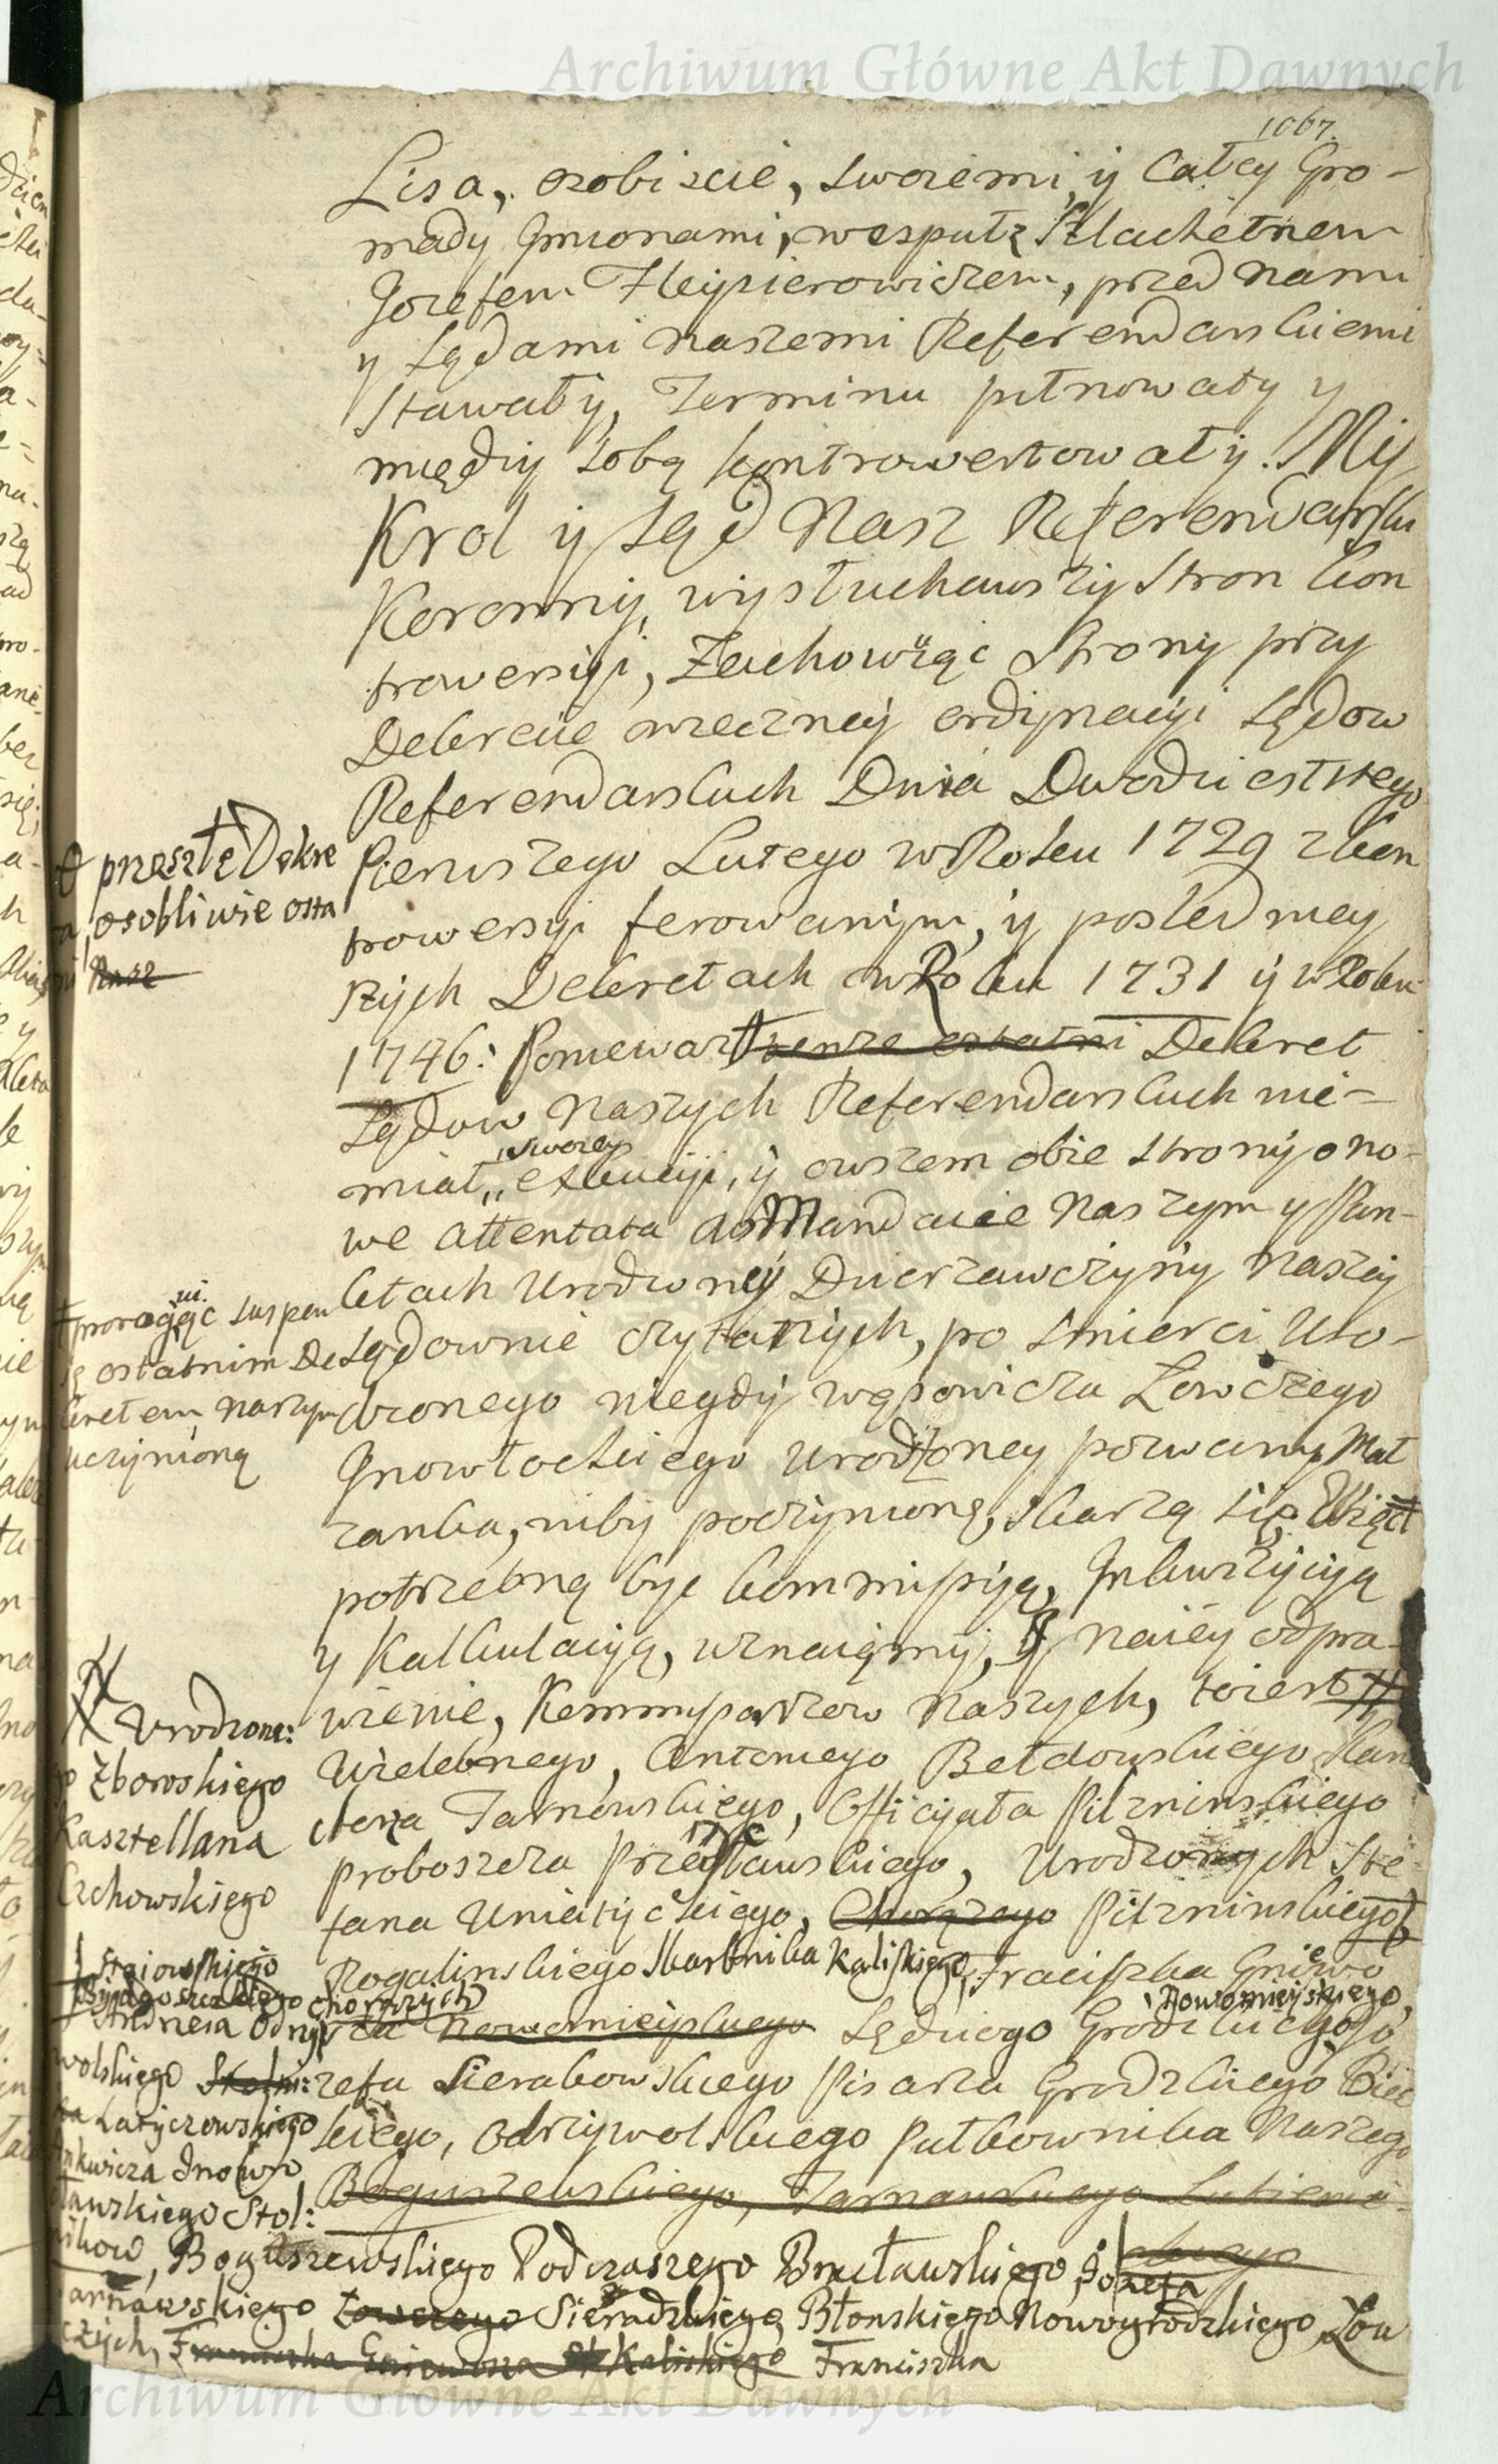 Archiwum Główne Akt Dawnych
1067.
Lisa, osobiscie, swoiemi, y Całey Gro-
mady Jmionami, wespuł z Szlachetnem
Jozefem Fleysierowiczem, przed Nami
y Sądami Naszemi Referendarskiemi
Stawały, Terminu pilnowały y
między sobą kontrowertowały. My
Krol y Sąd Nasz Referendarski
Koronny, wysłuchawszy Stron kon
trowersyi, Zachowuiąc Strony przy
Dekrecie wieczney ordynacyi Sądow
Referendarskich Dnia Dwudziestego
Pierwszego Lutego w Roku 1729 z kon
trowersyi ferowanym, y posledniey
szych Dekretach w Roku 1731 y w Roku
1746: Poniewasz tenze ostatni Dekret
Sądow Naszych Referendarskich nie-
swoiey
miał exekucyi, y owszem obie Strony o no-
we attentata w Mandacie Naszym y Pun-
ktach Urodzoney Dzierzawczyny Naszey
Sądownie czytanych, po smierci Uro-
dzonego niegdy Wąsowicza Łowczego
Jnowłockiego Urodzoney pozwaney Mał
zonka, niby poczynione, skarzą się, Więc
potrzebną byc kommissyą, Jnkwizycyą
y Kalkulacyą, uznaiemy, y na iey odpra-
wienie, Kommissarzow Naszych, to iest
Wielebnego, Antoniego Bełdowskiego Kan
clerza Tarnowskiego, Officyała Pilzninskiego
proboszcza Przecławskiego, Urodzonych Ste-
fana Uniatyckiego, Chorązego Pilzninskiego
Rogalinskiego Skarbnika Kaliskiego, Franciszka Gniewo
Nowomieyskiego,
sza Nowomieyskiego Sędziego Grodzkiego Jo
zefa Sierakowskiego Pisarza Grodzkiego Biec
kiego, Odrzywolskiego Pułkownika Naszego
Boguszewskiego, Tarnawskiego
Boguszewskiego Podczaszego Bracławskiego, Jozefa
Tarnawskiego Łowczego Sieradzkiego, Błonskiego Nowogrodzkiego, Łow
czych, Franciszka Gniewosza Kaliskiego Franciszka
przeszłe Dekre
ta, osobliwie osta
tni Nasz
proroguiąc suspen
są ostatnim De
kretem Naszym
uczynioną
Urodzone:
go Zborowskiego
Kasztellana
Czchowskiego
Staiowskiego
Bydgoskiego Chorązych
Andrzeia Odrzy
wolskiego Stolni:
ka Latyczowskiego
Ankwicza Jnowło
dzławskiego Stol:
nikow,
Archiwum Główne Akt Dawnych